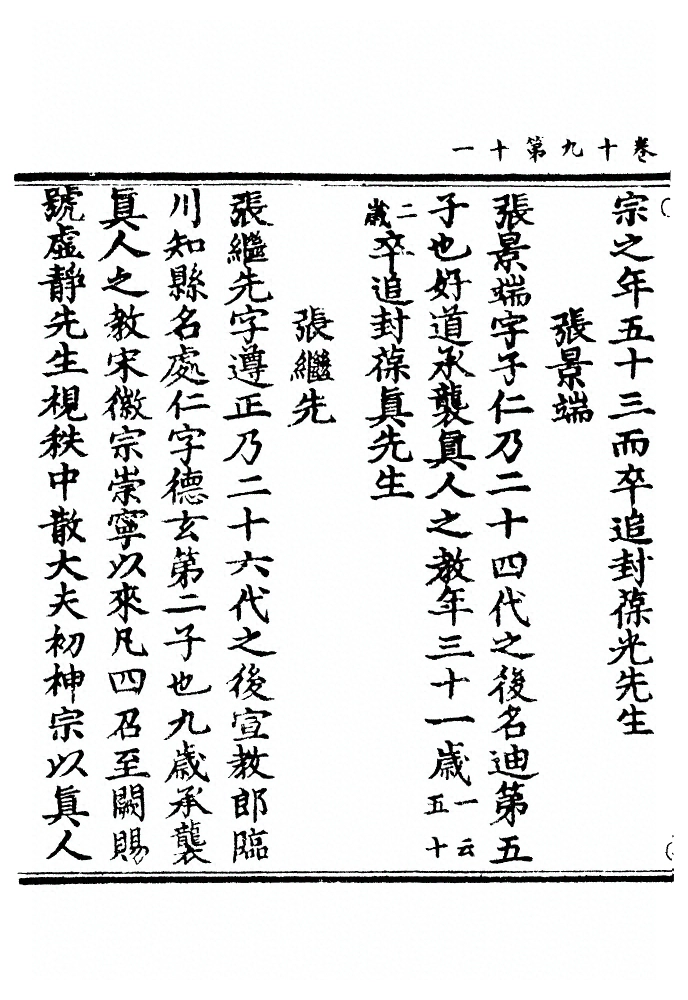 卷十九第十一
宗之年五十三而卒追封葆光先生
張景端
張景端字子仁乃二十四代之後名迪第五
子也好道承襲眞人之教年三十一歲一云五十
二歲卒追封葆眞先生
張繼先
張繼先字遵正乃二十六代之後宣教郎臨
川知縣名處仁字德玄第二子也九歲承襲
眞人之教宋徽宗崇寧以來凡四召至闕賜
號虛靜先生視秩中散大夫初神宗以眞人